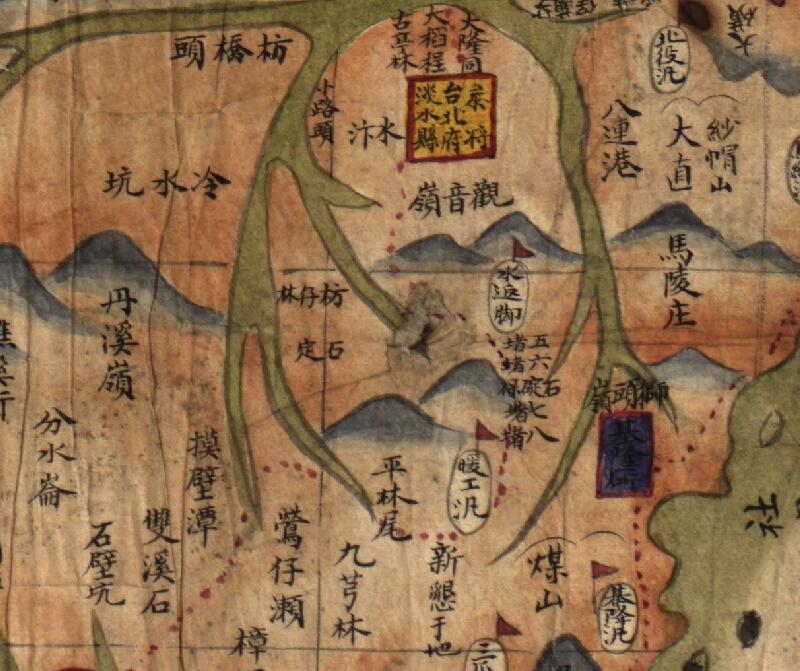 枋橋頭
古亭林
大稻埕
大隆同
淡水縣
台北府
小路頭
水汴
北投汛
八連港
大直
紗帽山
冷水坑
觀音嶺
馬陵庄
水返脚
枋仔林
石定
丹溪嶺
五六
堵堵
石碇
保
七八
堵堵
獅頭嶺
基隆廳
分水崙
摸壁潭
平林尾
暖工汛
石壁坑
雙溪石
鶯仔瀬
九芎林
新懇于地
煤山
基隆汛
社
樟